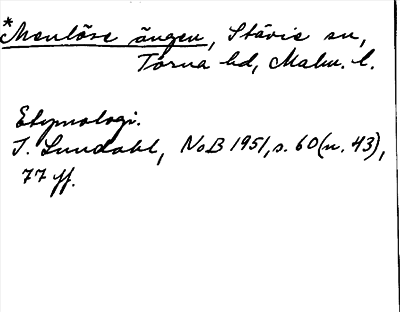 *Menlöse ängen, Stävie sn,
Torna hd, Malm. l.
Etymologi.
I. Lundahl, NoB 1951, s. 60 (n. 43),
77 ff.